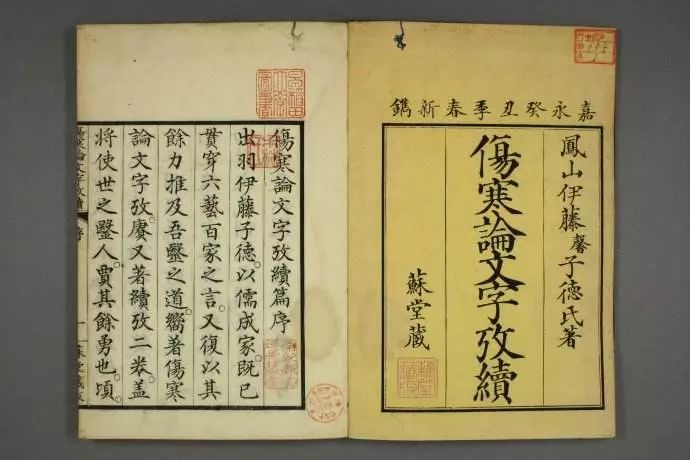 嘉永癸丑季春新鐫
鳳山伊藤馨子德氏著
傷寒論文字攷續
蘇堂藏
傷寒論文字攷續篇序
出羽伊藤子德以儒成家既已
貫穿六藝百家之言又復以其
餘力推及吾毉之道嚮著傷寒
論文字攷賡又著續攷二卷蓋
將使世之毉人賈其餘勇也頃